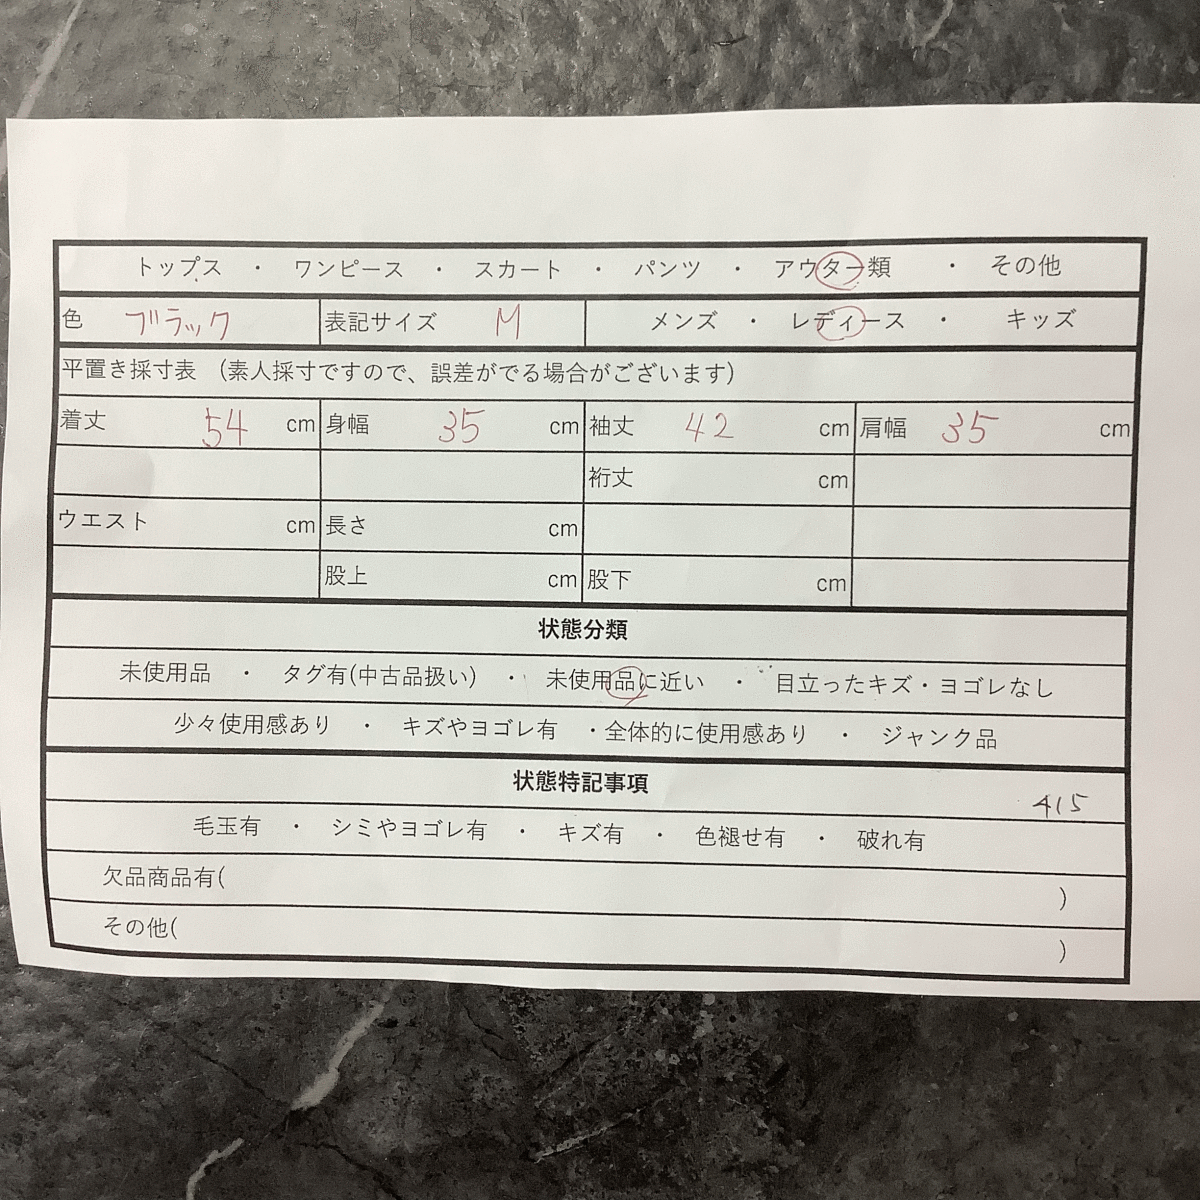 トップス ・ ワンピース ・ スカート ・ パンツ ・ アウター類 ・ その他
色 ブラック 表記サイズ M メンズ ・ レディース ・ キッズ
平置き採寸表 （素人採寸ですので、誤差がでる場合がございます）
着丈 54 cm 身幅 35 cm 袖丈 42 cm 肩幅 35 cm
裄丈 cm
ウエスト cm 長さ cm
股上 cm 股下 cm
状態分類
未使用品 ・ タグ有(中古品扱い) ・ 未使用品に近い ・ 目立ったキズ・ヨゴレなし
少々使用感あり ・ キズやヨゴレ有 ・全体的に使用感あり ・ ジャンク品
状態特記事項
415
毛玉有 ・ シミやヨゴレ有 ・ キズ有 ・ 色褪せ有 ・ 破れ有
欠品商品有( )
その他( )